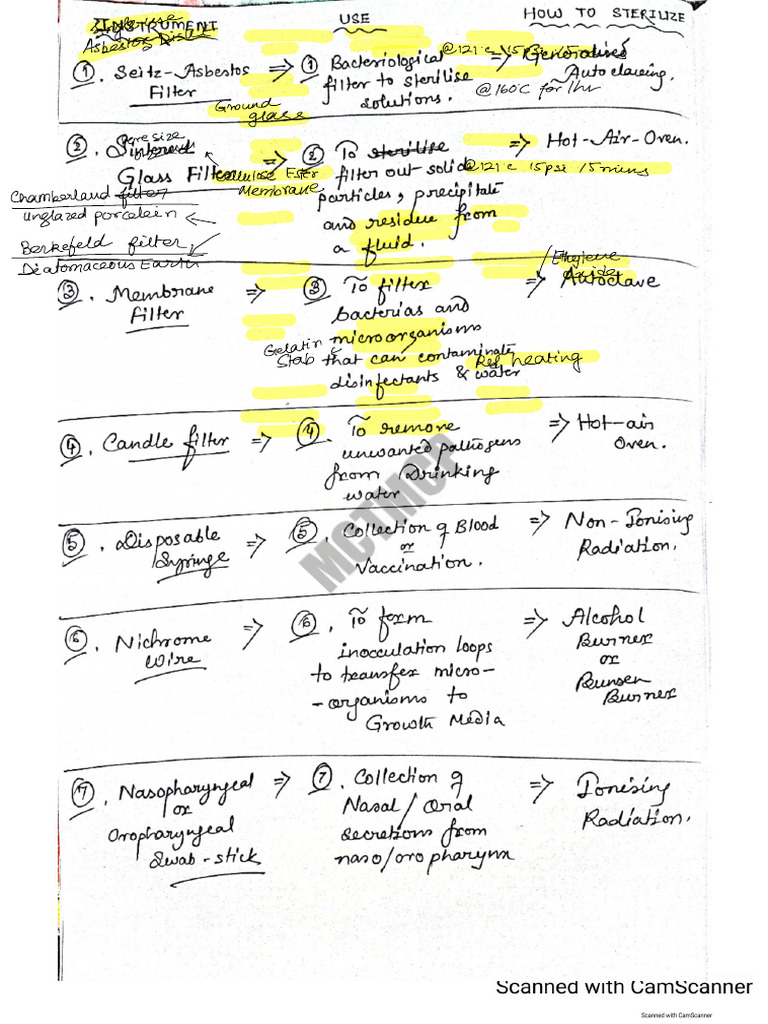 INSTRUMENT
USE
HOW TO STERILIZE
Asbestos Disc
① Seitz-Asbestos Filter
⇒ ① Bacteriological
filter to sterilise
solutions.
@121°c 15psi 15
⇒ Generalised
Autoclaveing.
@160°C for 1hr
Ground
glass
② . Sintered
Pore size
Glass Filter
⇒ ② To sterilise
filter out solid
particles, precipitate
and residue from
a fluid.
⇒ Hot-Air-Oven.
@121°c 15psi 15mins
Cellulose Ester
Membrane
Chamberland filter
Unglazed porcelein
Berkefeld filter
Diatomaceous Earth
③ . Membrane
Filter
⇒ ③ To filter
bacterias and
microorganisms
that can contaminate
disinfectants & water
⇒ Autoclave
Ethylene
oxide
Gelatin
Stab
heating
④ . Candle filter ⇒ ④ To remove
unwanted pathogens
from Drinking
water
⇒ Hot-air
Oven.
⑤ . Disposable
Syringe
⇒ ⑤ . Collection of Blood
or
Vaccination.
⇒ Non-Ionising
Radiation.
⑥ . Nichrome
Wire
⇒ ⑥ . To form
inocculation loops
to transfer micro-
-organisms to
Growth Media
⇒ Alcohol
Burner
or
Bunsen
Burner
⑦ . Nasopharyngeal
or
Oropharyngeal
Swab-stick
⇒ ⑦ . Collection of
Nasal/Oral
secretions from
naso/oropharynx
⇒ Ionising
Radiation.
MCTMCP
Scanned with CamScanner
Scanned with CamScanner